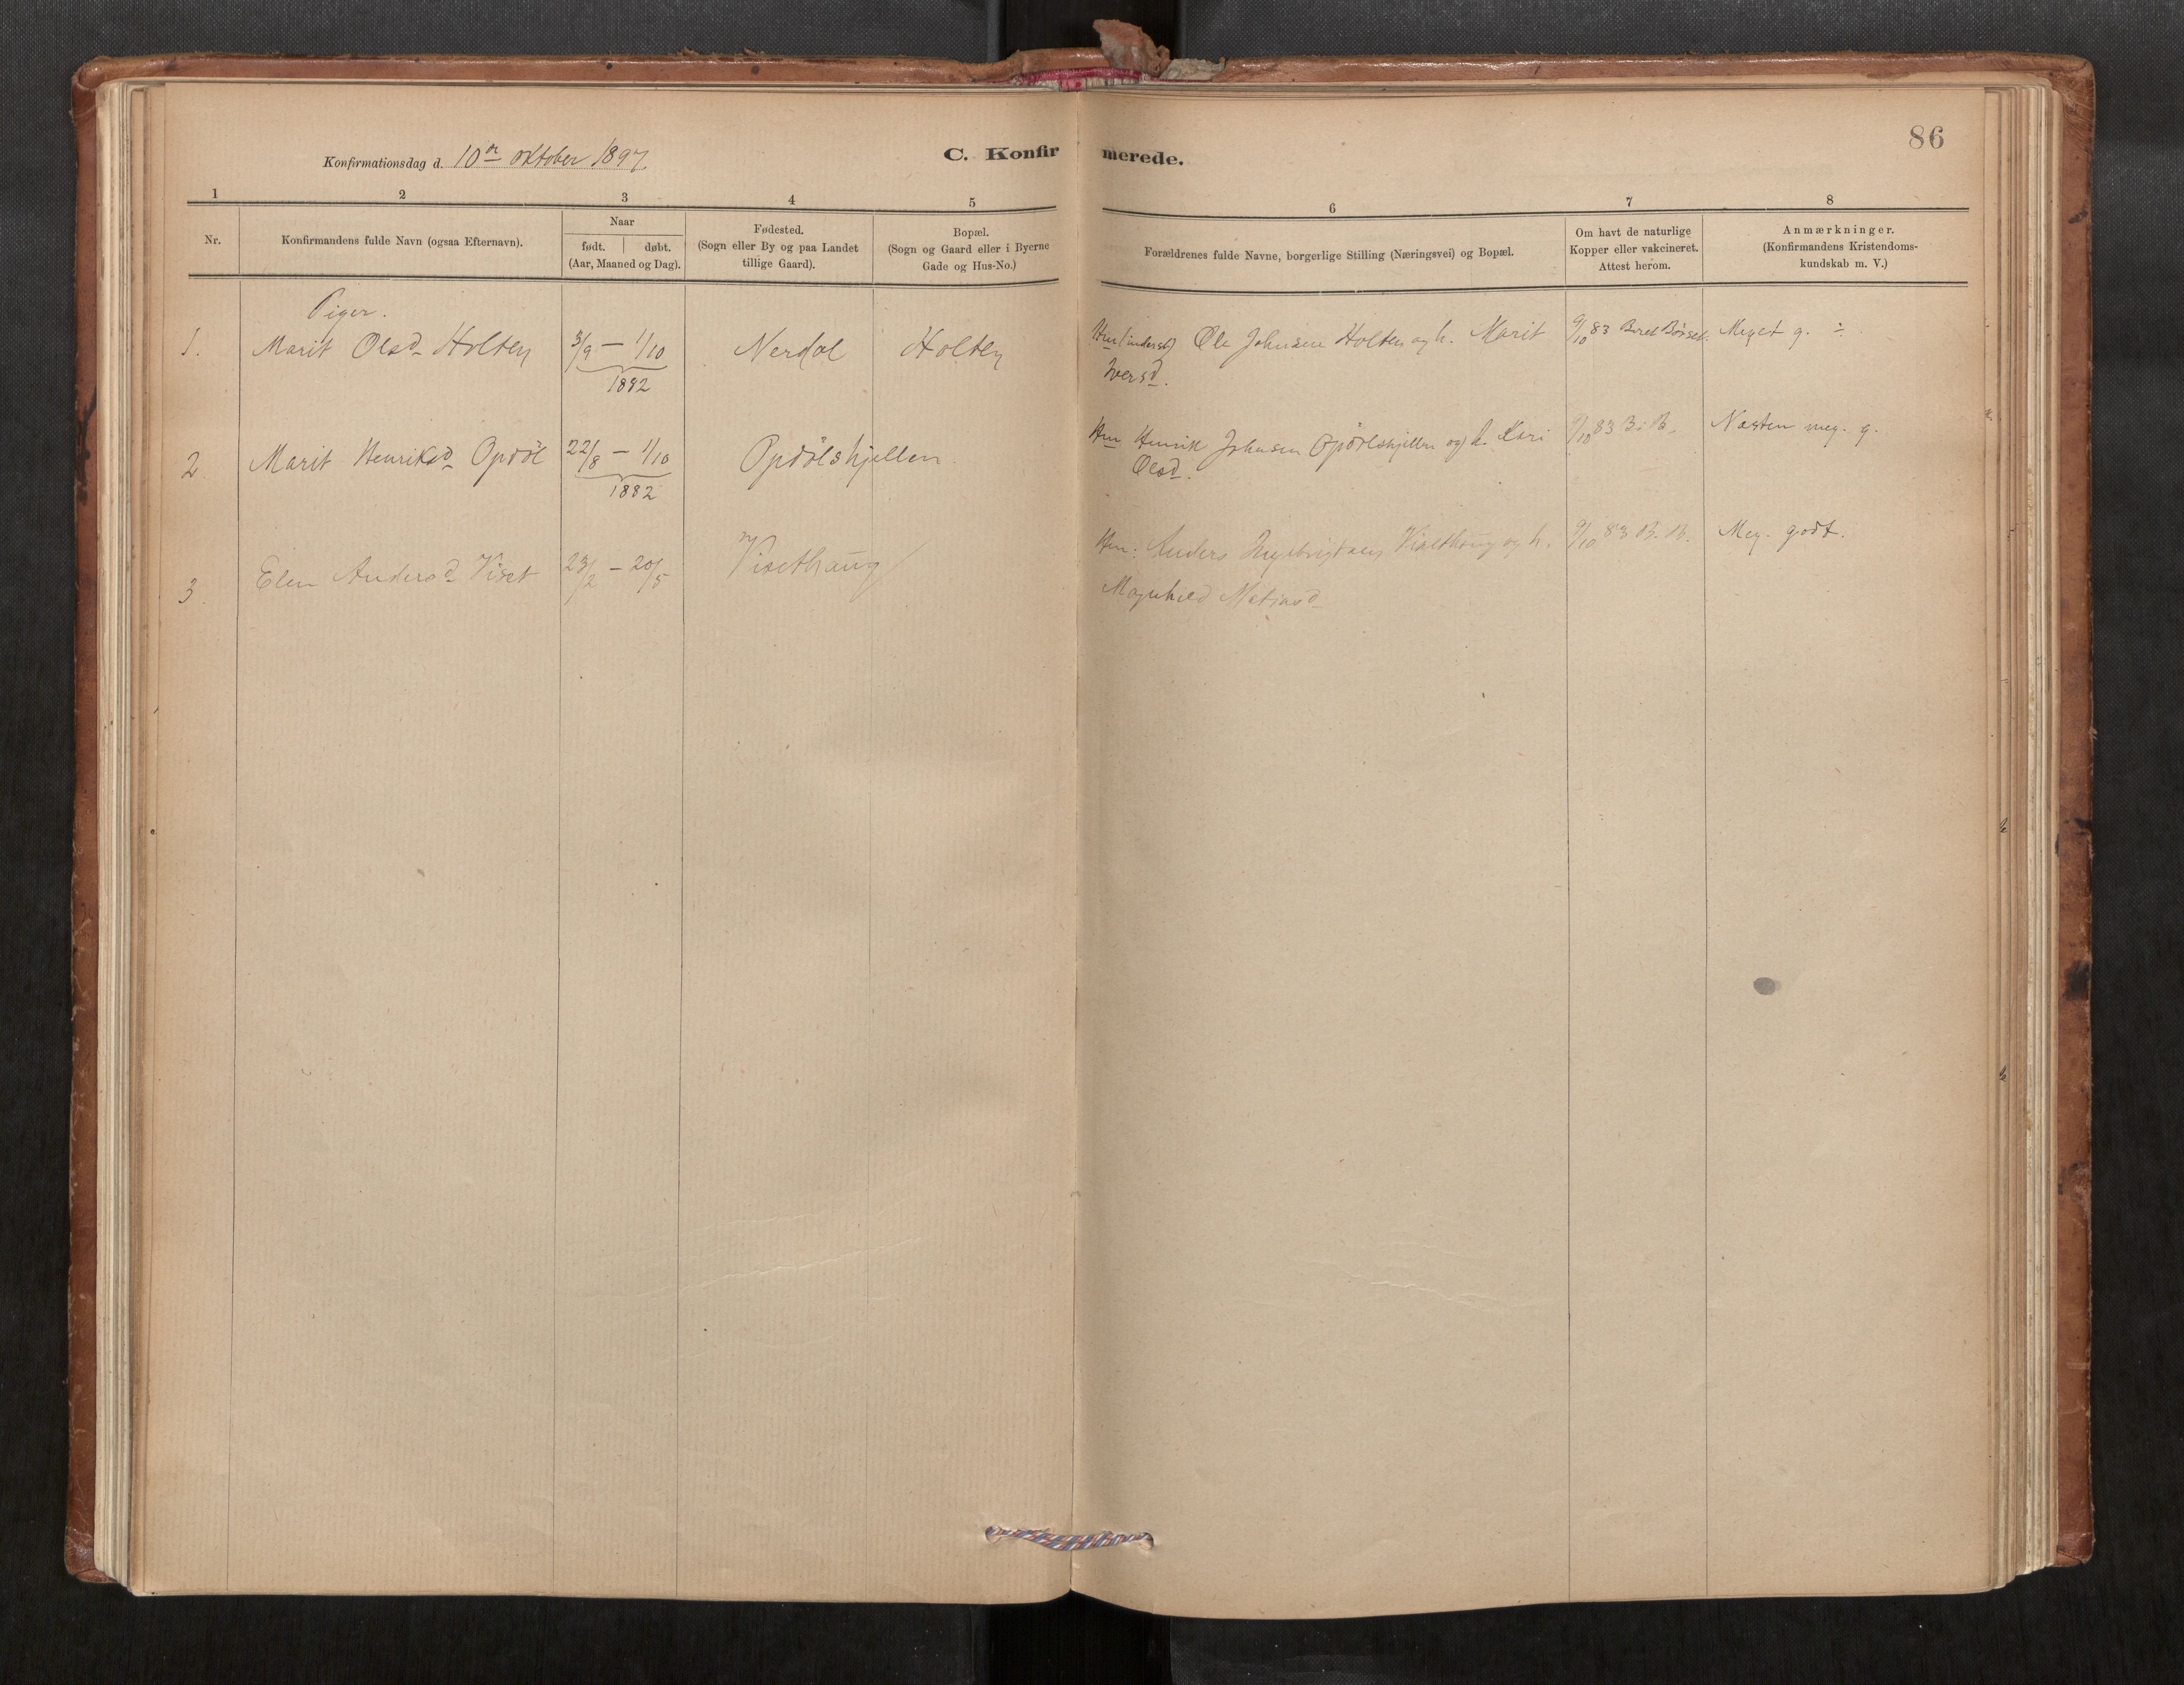 86
Konfirmationsdag d. 10de oktober 1897
C. Konfirmerede.
1 2 3 4 5 6 7 8
Nr.
Konfirmandens fulde Navn (ogsaa Efternavn).
Naar
født. | døbt.
(Aar, Maaned og Dag).
Fødested.
(Sogn eller By og paa Landet
tillige Gaard).
Bopæl.
(Sogn og Gaard eller i Byerne
Gade og Hus-No.)
Forældrenes fulde Navne, borgerlige Stilling (Næringsvei) og Bopæl.
Om havt de naturlige
Kopper eller vakcineret.
Attest herom.
Anmærkninger.
(Konfirmandens Kristendoms-
kundskab m. V.)
Piger.
1. Marit Olsd. Holten 3/9 – 1/10 Nerdal Holten Hm (inderst) Ole Johnsen Holten og h. Marit 9/10 83 Beret Börset. Meget g. ÷
1882 Iversd.
2. Marit Henriksd. Opdöl 22/8 – 1/10 Opdölshjellen Hm Henrik Johnsen Opdölshjellen og h. Kari 9/10 83 B. B. Næsten meg. g.
1882 Olsd.
3. Elen Andersd. Viset 23/2 – 20/5 Visethaug Hm: Anders Ingebrigtsen Visethaug og h. 9/10 83 B. B. Meg. godt.
Magnhild Matiasd.